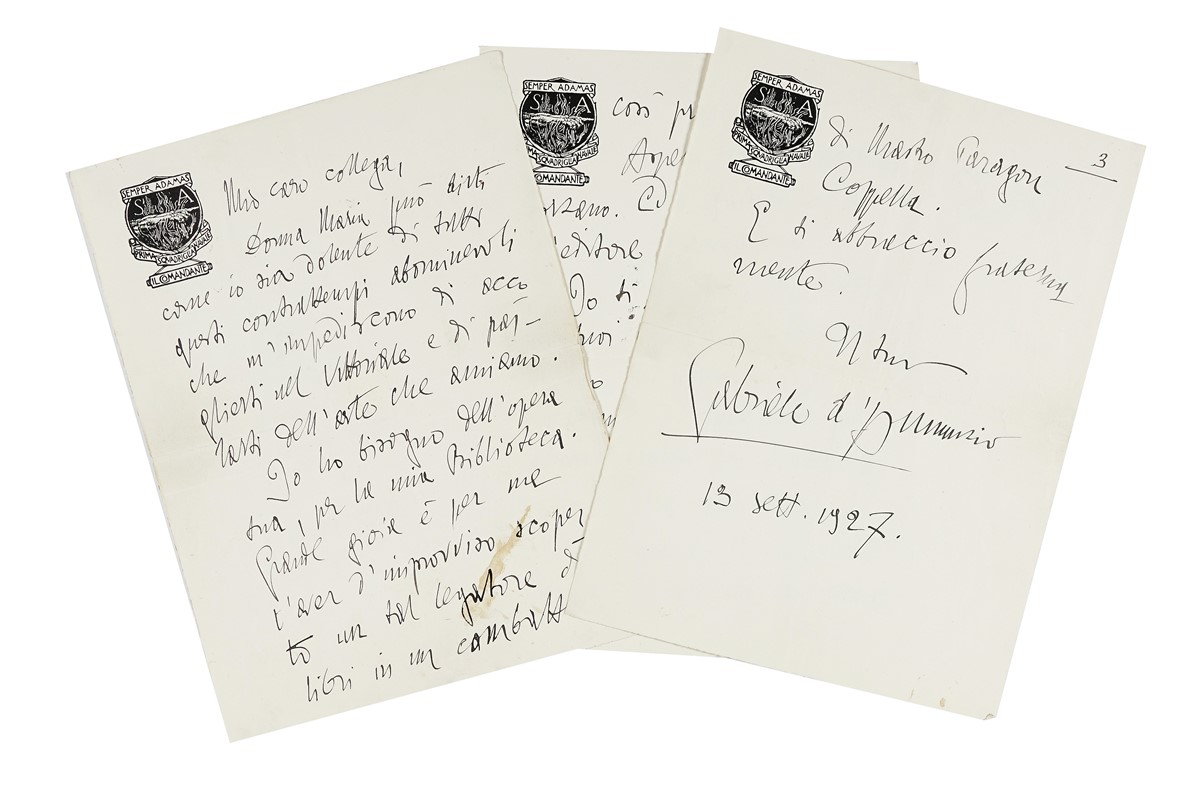 SEMPER ADAMAS
S A
PRIMA SQUADRIGLIA NAVALE
IL COMANDANTE
Mio caro collega,
Donna Maria può dirti
come io sia dolente di tutti
questi contrattempi abominevoli
che m'impediscono di acco
glierti nel Vittoriale e di par-
larti dell'arte che amiamo.
Io ho bisogno dell'opera
tua, per la mia Biblioteca.
Grande gioia è per me
l'aver d'improvviso scoper
to un tal legatore di
libri in un combatt
SEMPER ADAMAS
S A
PRIMA SQUADRIGLIA NAVALE
IL COMANDANTE
così pr
Aspe
editore
Io ti
SEMPER ADAMAS
S A
PRIMA SQUADRIGLIA NAVALE
IL COMANDANTE
3
di Mastro Paragon
Coppella.
E ti abbraccio fraterna
mente.
Gabriele d'Annunzio
13 sett. 1927.